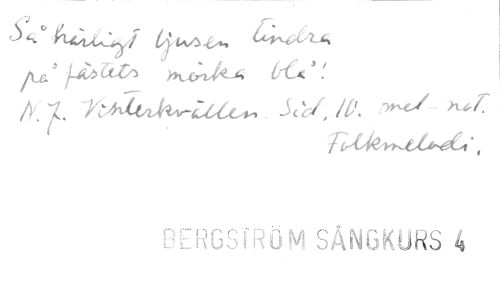 Så härligt ljusen tindra
på fästets mörka blå!
N. 7. Vinterkvällen. Sid. 10. mel-not.
Folkmelodi.
BERGSTRÖM SÅNGKURS 4